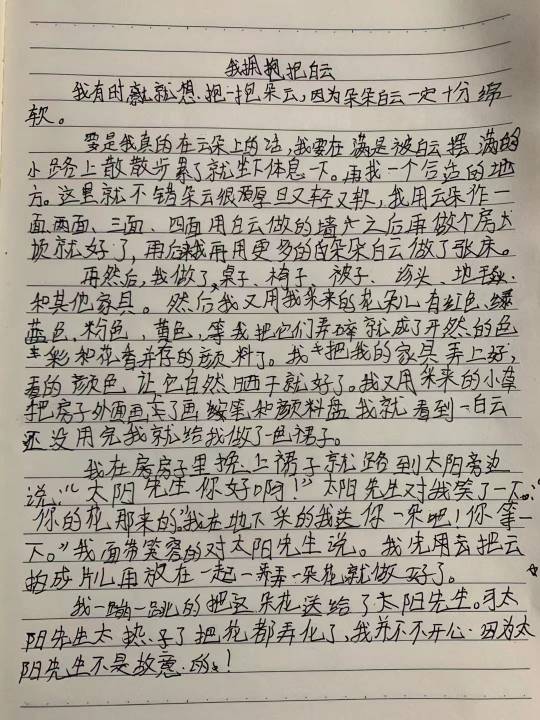 我拥抱把白云
我有时就就想抱一抱朵云，因为朵朵白云一定十分绵
软。
要是我真的在云朵上的话，我要在满是被白云摆满的
小路上散散步累了就坐下体息一下。再我一个合适的地
方。这里就不错朵云很厚且又轻又软，我用云朵作一
面、两面、三面、四面用白云做的墙之后再做个房
顶就好了，再后我再用更多的白朵朵白云做了张床。
再然后，我做了，桌子、椅子、被子、枕头、地毯
和其他家具。然后我又用我采来的花朵儿有红色、绿
蓝色、粉色、黄色，等我把它们弄碎就成了开然的色
彩和花香并存的颜料了。我把我的家具弄上好
看的颜色让它自然晒干就好了。我又用采来的小草
把房子外面画了画笔和颜料盘我就看到一白云
还没用完我就给我做了一色裙子。
我在房房子里换上裙子就路到太阳旁边
说：“太阳先生你好啊！”太阳先生对我笑了一下：“
你的花那来的”“我在地下采的我送你一朵吧！你等一
下。”我面带笑容的对太阳先生说。我先用去把云
拍成片儿再放在一起一弄一朵花就做好了。
我一蹦一跳的把这朵花送给了太阳先生。可太
阳先生太热了把花都弄化了，我并不不开心因为太
阳先生不是故意的！